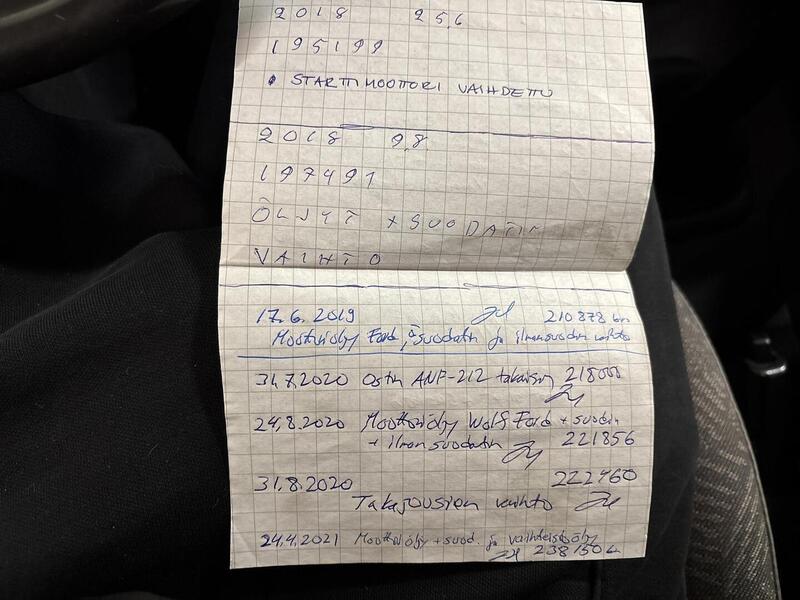 2018 25.6
195199
• STARTTIMOOTTORI VAIHDETTU
2018 9.8
197491
ÖLJYT + SUODATIN
VAIHTO
17.6.2019 210878 km
Moottoriöljy Ford, öljysuodatin ja ilmansuodatin vaihto
31.7.2020 Ostin ANP-212 takaisin 218000
24.8.2020 Moottoriöljy Wolf Ford + suodatin
+ ilmansuodatin 221856
31.8.2020 222460
Takajousien vaihto
24.4.2021 Moottoriöljy + suod. ja vaihteistoöljy
238150